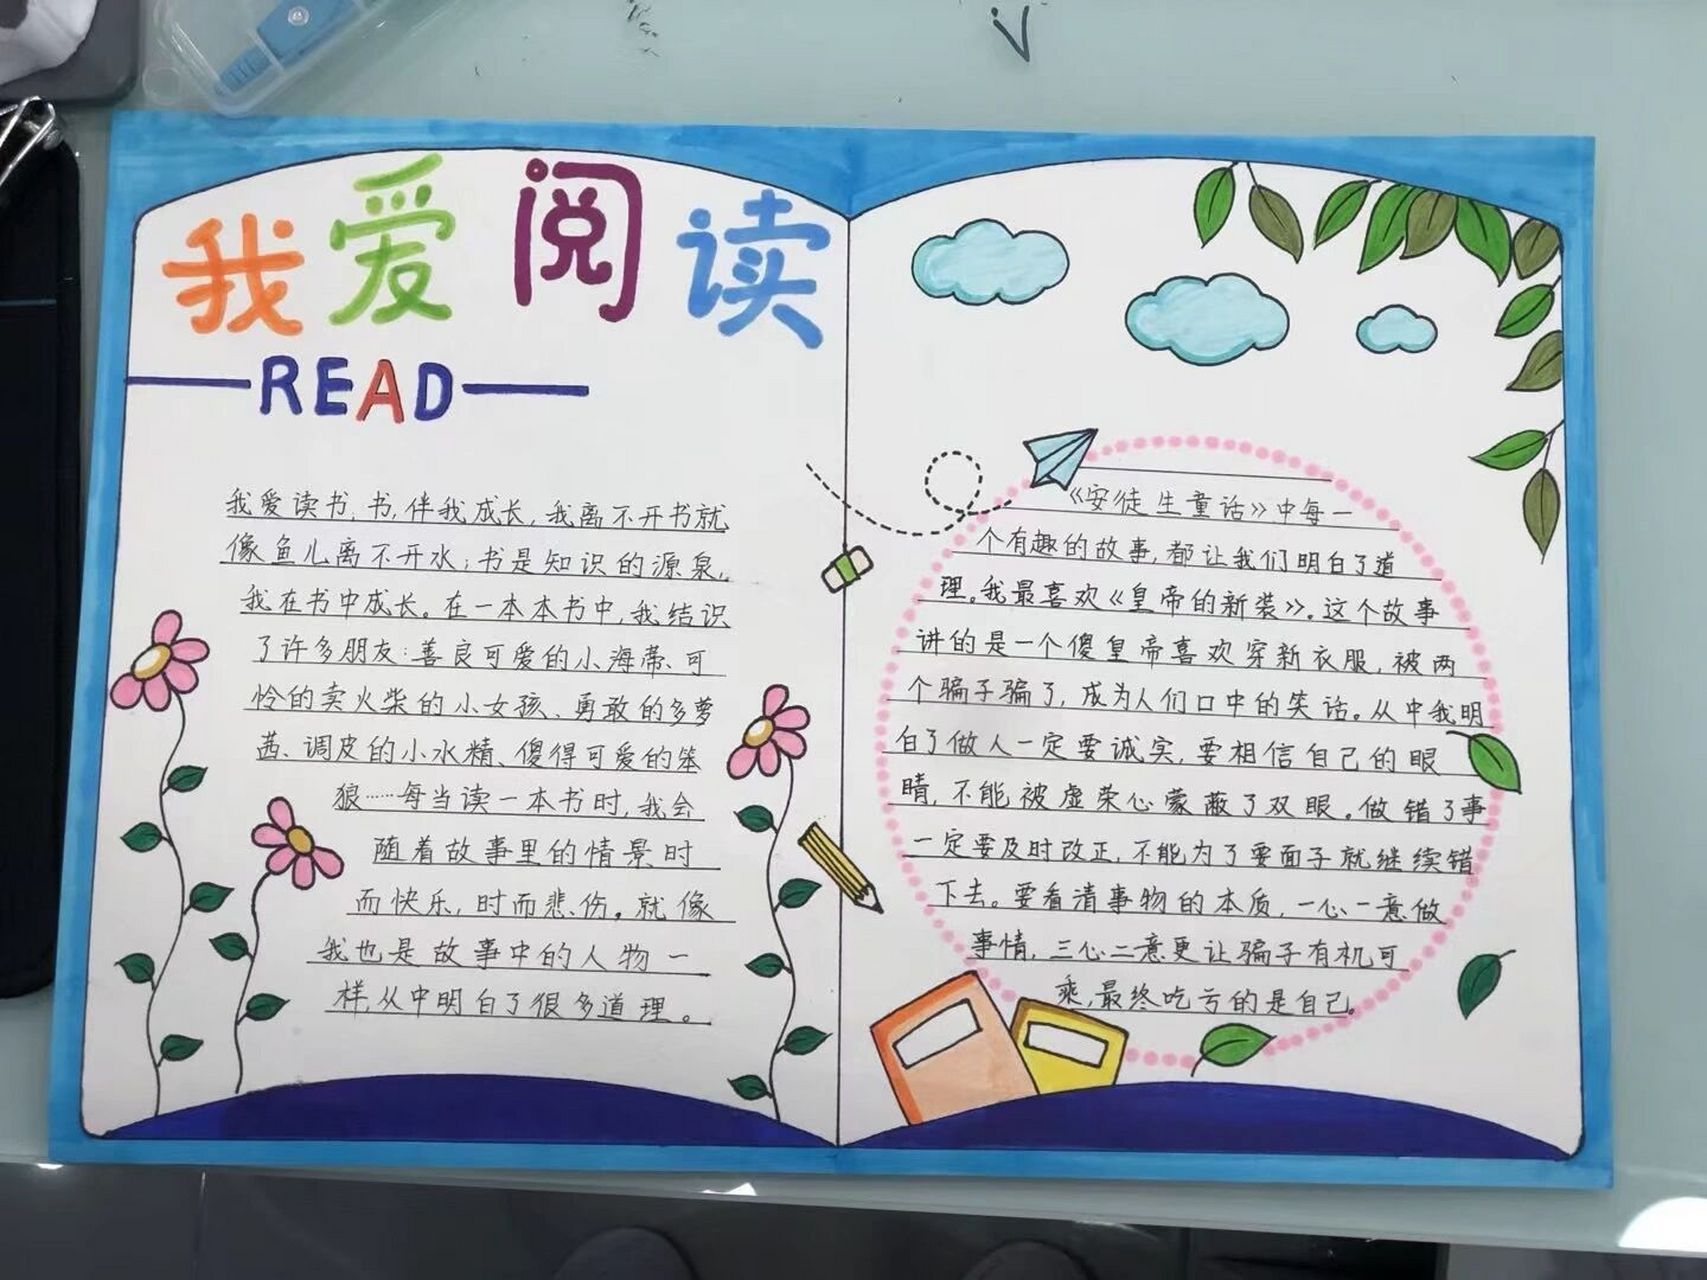 我爱阅读
READ
我爱读书,书,伴我成长,我离不开书就
像鱼儿离不开水;书是知识的源泉,
我在书中成长。在一本本书中,我结识
了许多朋友:善良可爱的小海蒂、可
怜的卖火柴的小女孩、勇敢的多萝
茜、调皮的小水精、傻得可爱的笨
狼……每当读一本书时,我会
随着故事里的情景时
而快乐,时而悲伤。就像
我也是故事中的人物一
样,从中明白了很多道理。
《安徒生童话》中每一
个有趣的故事,都让我们明白了道
理。我最喜欢《皇帝的新装》。这个故事
讲的是一个傻皇帝喜欢穿新衣服,被两
个骗子骗了,成为人们口中的笑话。从中我明
白了做人一定要诚实,要相信自己的眼
睛,不能被虚荣心蒙蔽了双眼。做错了事
一定要及时改正,不能为了要面子就继续错
下去。要看清事物的本质,一心一意做
事情,三心二意更让骗子有机可
乘,最终吃亏的是自己。